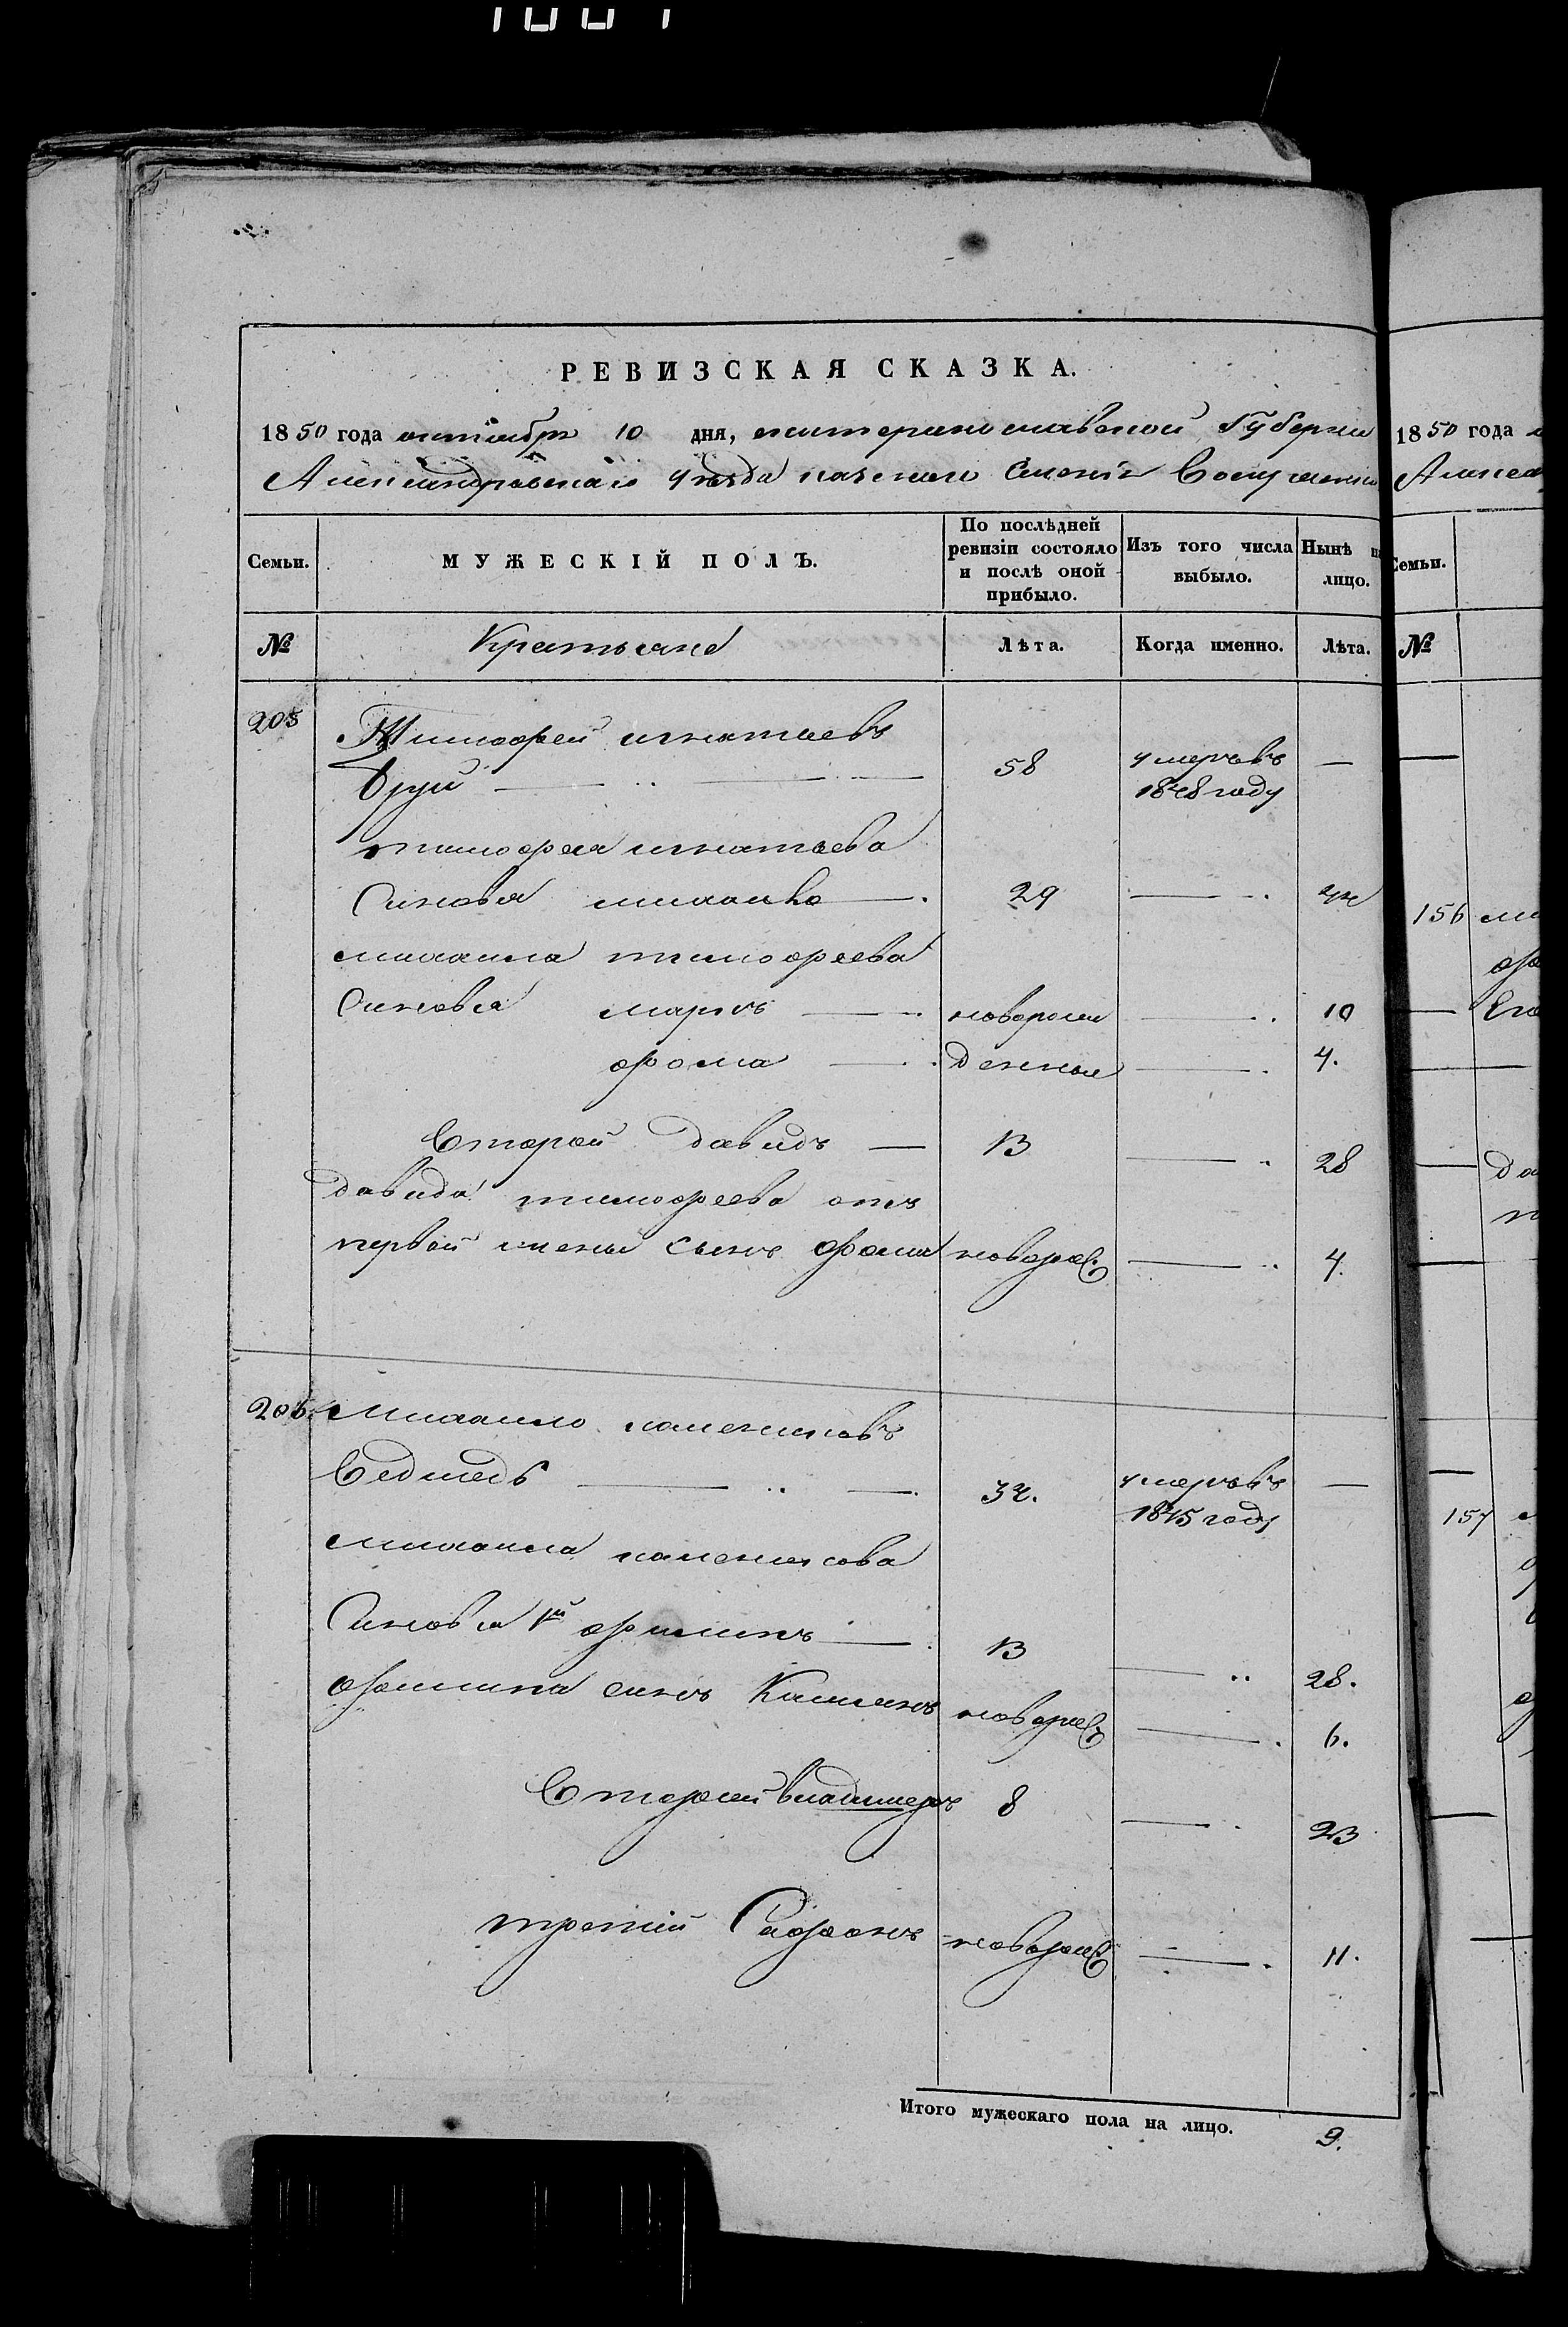 РЕВИЗСКАЯ СКАЗКА.
1850 года октября 10 дня, екатеринославской Губернии
Александровскаго уезда казенного
Семьи. МУЖЕСКІЙ ПОЛЪ. По послѣдней ревизіи состояло и послѣ оной прибыло. Изъ того числа выбыло. Нынѣ на лицо.
№ Крестьяне Лѣта. Когда именно. Лѣта.
205 Тимофей игнатьевъ
Бруй 58 умеръ въ 1848 году —
тимофея игнатьева
Синовья михаило 29 — 44
михаила тимофеева
Синовья марко новорож — 10
фома денные — 4.
Второй давидъ — 13 — 28
давида тимофеева отъ
первой жены сынъ фома новорож — 4.
206. Михаило калениковъ
Ведмедь 32. умеръ въ 1845 году —
михаила каленикова
Синовья 1й фоминъ 13 — 28.
фомина синъ новорож — 6.
Второй владимеръ 8 — 23
третий Сафонъ новорож — 11.
Итого мужескаго пола на лицо. 9.
1850 года
Семьи.
№
156
157